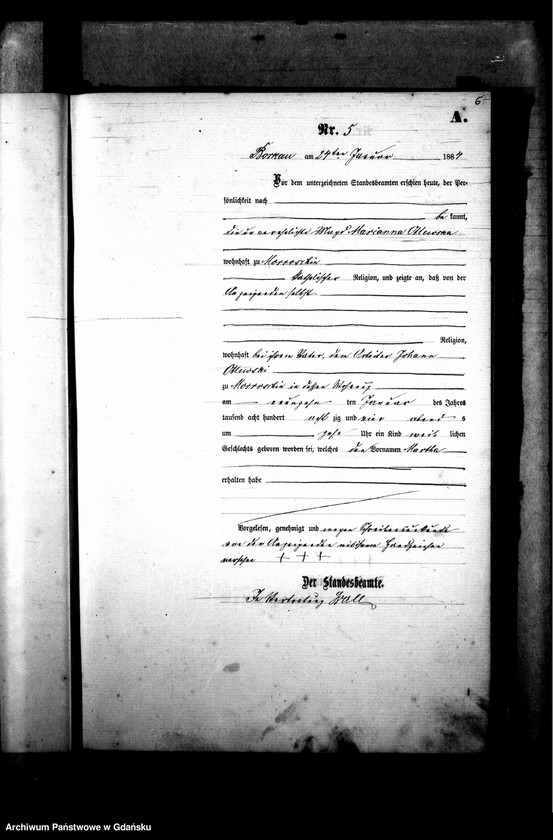 6
A.
Nr. 5
Borkau am 24ten Januar 1884
Vor dem unterzeichneten Standesbeamten erschien heute, der Per-
sönlichkeit nach
be kannt,
die unverehelichte Magd Marianna
wohnhaft zu
katholischer Religion, und zeigte an, daß von der
Anzeigenden selbst
Religion,
wohnhaft bei ihrem Vater, dem Arbeiter Johann
zu in dessen Wohnung
am neunzehn ten Januar des Jahres
tausend acht hundert acht zig und vier abend s
um zehn Uhr ein Kind weib lichen
Geschlechts geboren worden sei, welches den Vornamen Martha
erhalten habe
Vorgelesen, genehmigt und wegen Schreibensunkunde
von der Anzeigenden mit ihrem Handzeichen
versehen + + +
Der Standesbeamte.
In Vertretung Wall
Archiwum Państwowe w Gdańsku